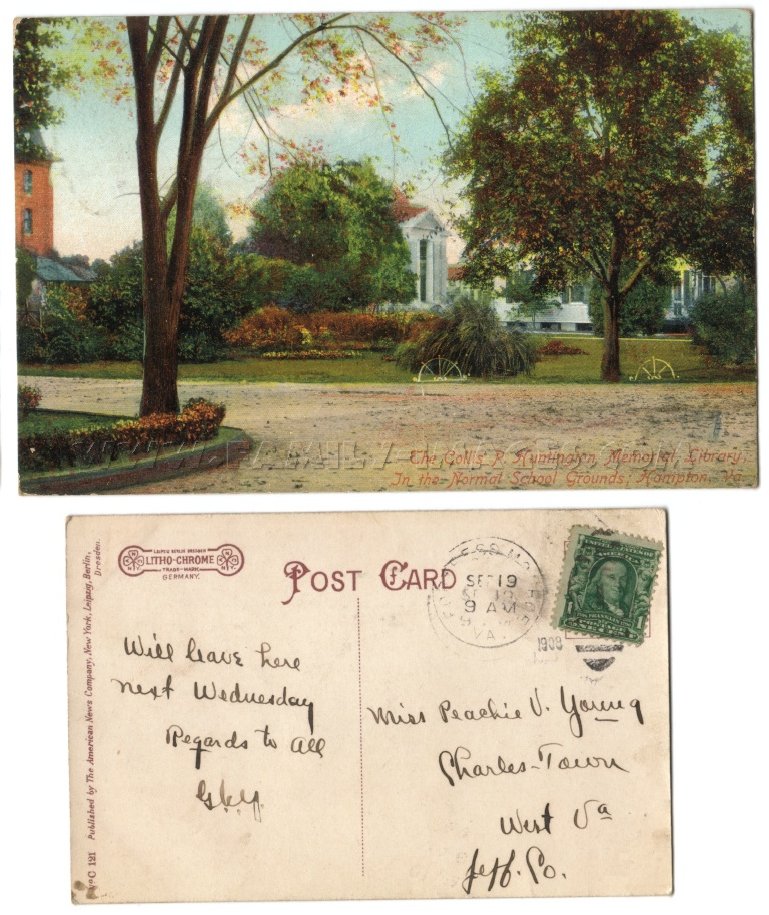 The Collis P. Huntington Memorial Library,
In the Normal School Grounds, Hampton, Va.
WWW.FAMILY-IMAGES.COM
LEIPZIG BERLIN DRESDEN
LITHO-CHROME
TRADE-MARK
GERMANY.
POST CARD
FORTRESS MONROE
SEP 19
9 AM
VA.
1909
UNITED STATES OF AMERICA
1
FRANKLIN
Published by The American News Company, New York, Leipzig, Berlin,
Dresden.
No C 121
Will leave here
next Wednesday
Regards to all
Miss Peachie V. Young
Charles-Town
West Va
Jeff. Co.